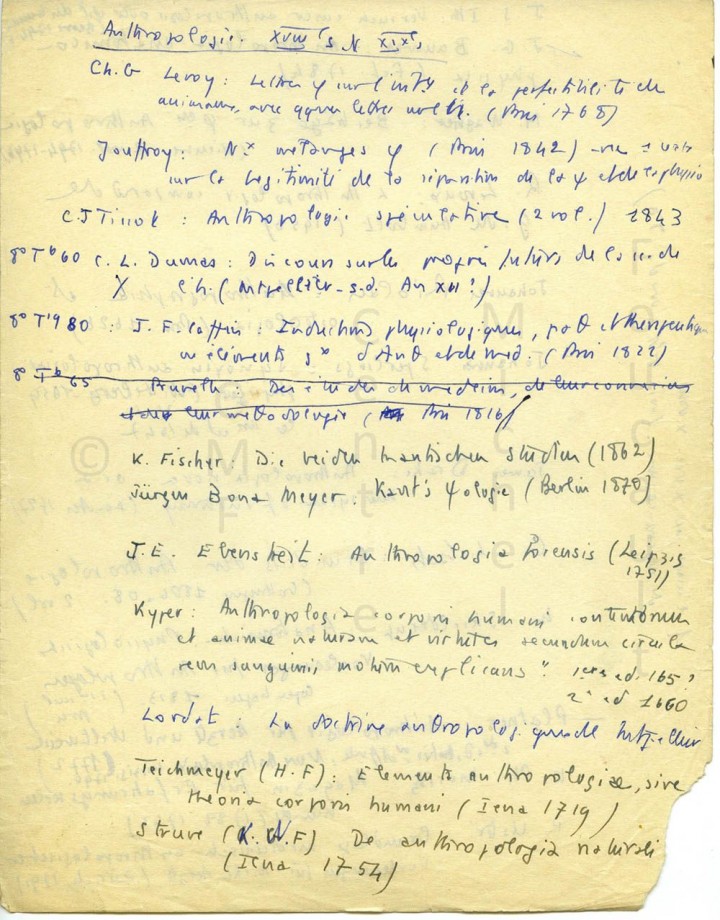 Anthropologie. XVIIIe s et XIXe s
Ch. G Leroy : Lettres φ sur l'intce et la perfectibilité des
animaux, avec qques lettres sur l'h. (Paris 1768)
Jouffroy : Nx mélanges φ (Paris 1842)
sur la légitimité de la séparation de la ψ et de la physio
C.J Tissot : Anthropologie spéculative (2 vol.) 1843
8° Tb 60 C. L. Dumas : Discours sur les progrès futurs de la sc. de
X l'h. (Montpellier - s.d. An XII ?)
8° T 9 80 : J. F. : Inductions physiologiques, path et thérapeutiques
d'Anat et de med. (Paris 1822)
8 Tb 65 : Des études du médecin, de leur connexion
et de leur méthodologie (Paris 1816)
K. Fischer : Die beiden kantischen Studien (1862)
Jürgen Bona Meyer : Kant's ψologie (Berlin 1870)
J.E. Ebenstreit : Anthropologia forensis (Leipzig
1751)
Kyper : Anthropologia corporis humani contentorum
et animae naturam et virtutes secundum circula
rem sanguinis motum explicans" 1ere ed. 165?
2e ed 1660
Lordat : La doctrine anthropologique de Montpellier
Teichmeyer (H.F) : Elementa anthropologiae, sive
theoria corporis humani (Iena 1719)
Struve (K. W.F) De anthropologia naturali
(Iena 1754)